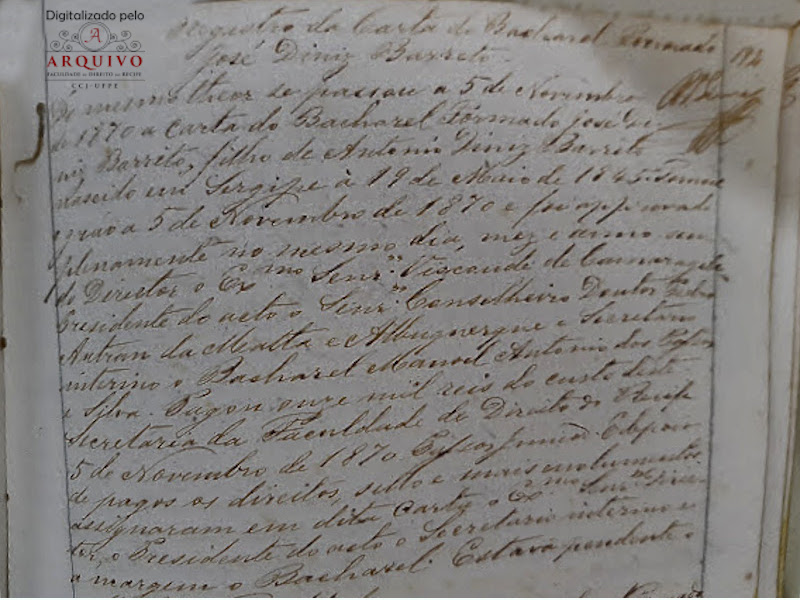 Digitalizado pelo
A
ARQUIVO
FACULDADE DE DIREITO DO RECIFE
CCJ-UFPE
Registro da Carta de Bacharel Formado
José Diniz Barreto
184
Do mesmo theor se passou a 5 de Novembro
de 1870 a Carta do Bacharel Formado José Di
niz Barreto, filho de Antonio Diniz Barreto
nascido em Sergipe à 19 de Maio de 1845.
grão a 5 de Novembro de 1870 e foi approvado
plenamente no mesmo dia, mez e anno sen
do Director o Exmo Senr. Visconde de Camaragibe
Presidente do acto o Senr. Conselheiro Doutor Pedro
Autran da Matta e Albuquerque e Secretario
interino o Bacharel Manoel Antonio dos Passos
e Silva. Pagou onze mil reis do custo desta
Secretaria da Faculdade de Direito do Recife
5 de Novembro de 1870. Depois
de pagos os direitos, sello e mais emolumentos
assignaram em dita Carta o Exmo Senr. Direc
tor, o Presidente do acto o Secretario interino e
a margem o Bacharel. Estava pendente o